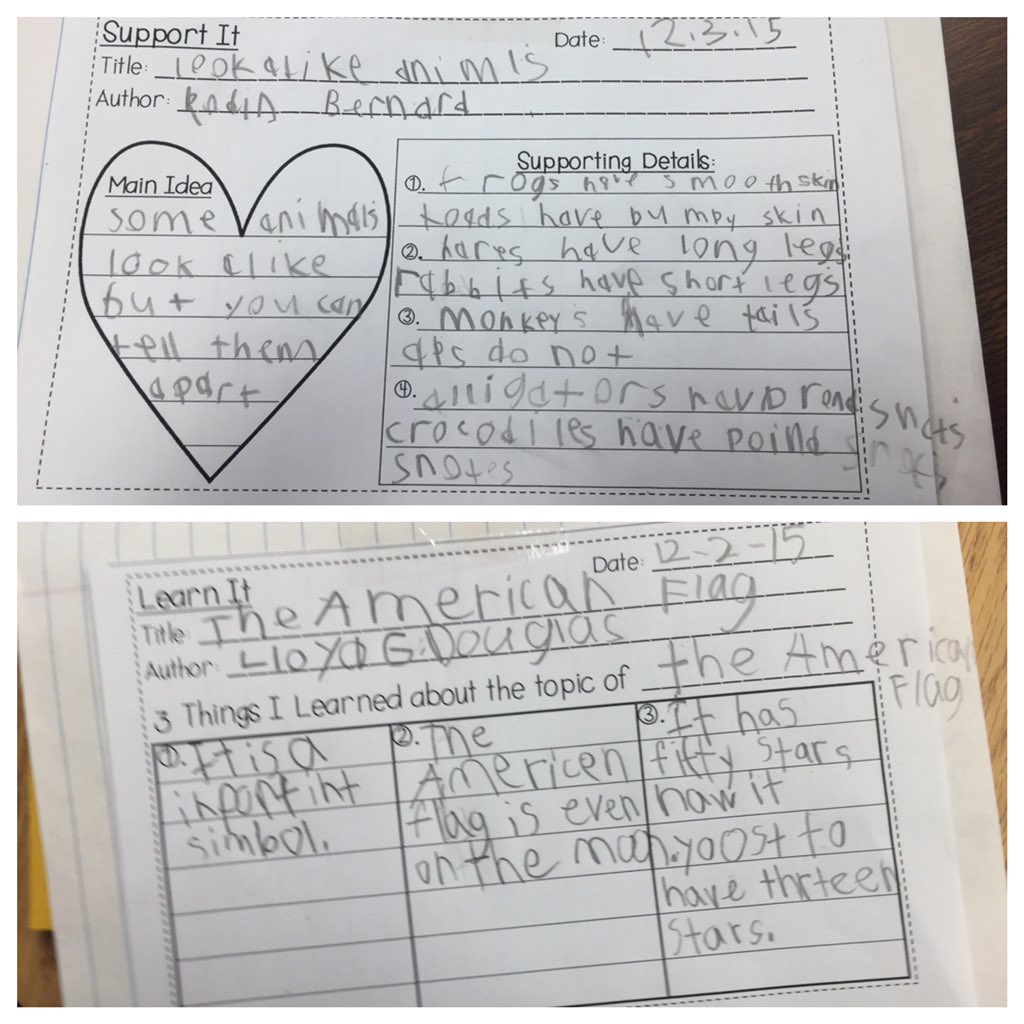 Support It
Date: 12.3.15
Title: lookalike animls
Author: Robin Bernard
Main Idea
some animals
look alike
but you can
tell them
apart
Supporting Details:
①. frogs have smooth skin
toads have bumpy skin
②. hares have long legs
rabbits have short legs
③. monkeys have tails
aps do not
④. alligators have rond snots
crocodiles have poind snots
snotes
Learn It
Date: 12-2-15
Title: The American Flag
Author: Lloyd G. Douglas
3 Things I Learned about the topic of the American
Flag
①. It is a
inportint
simbol.
②. The
Americen
flag is even
on the moon.
③. It has
fifty stars
now it
yoost to
have thrteen
stars.